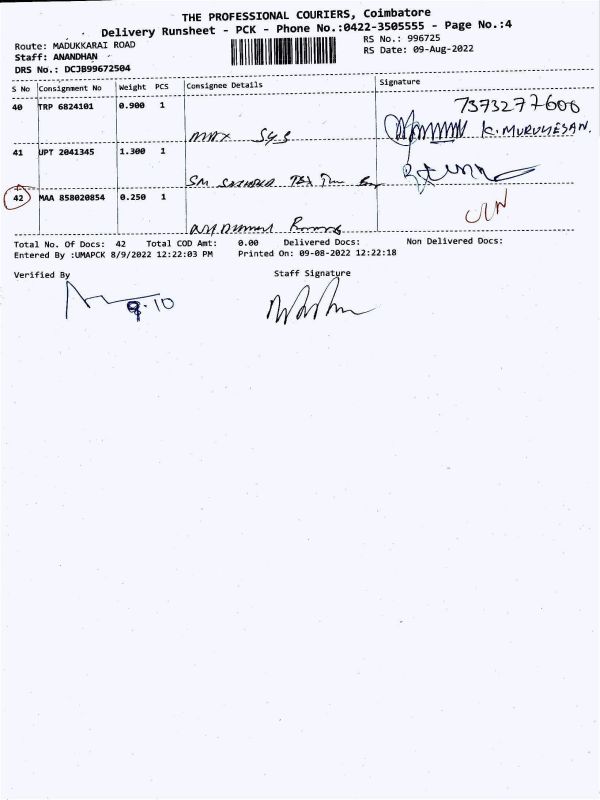 THE PROFESSIONAL COURIERS, Coimbatore
Delivery Runsheet - PCK - Phone No.:0422-3505555 - Page No.:4
Route: MADUKKARAI ROAD
RS No.: 996725
Staff: ANANDHAN
RS Date: 09-Aug-2022
DRS No.: DCJB99672504
S No Consignment No Weight PCS Consignee Details Signature
40 TRP 6824101 0.900 1
7373277600
K. MURUGESAN.
MAX SYS
41 UPT 2041345 1.300 1
SM
42 MAA 858020854 0.250 1
Total No. Of Docs: 42 Total COD Amt: 0.00 Delivered Docs: Non Delivered Docs:
Entered By :UMAPCK 8/9/2022 12:22:03 PM Printed On: 09-08-2022 12:22:18
Verified By Staff Signature
9.10